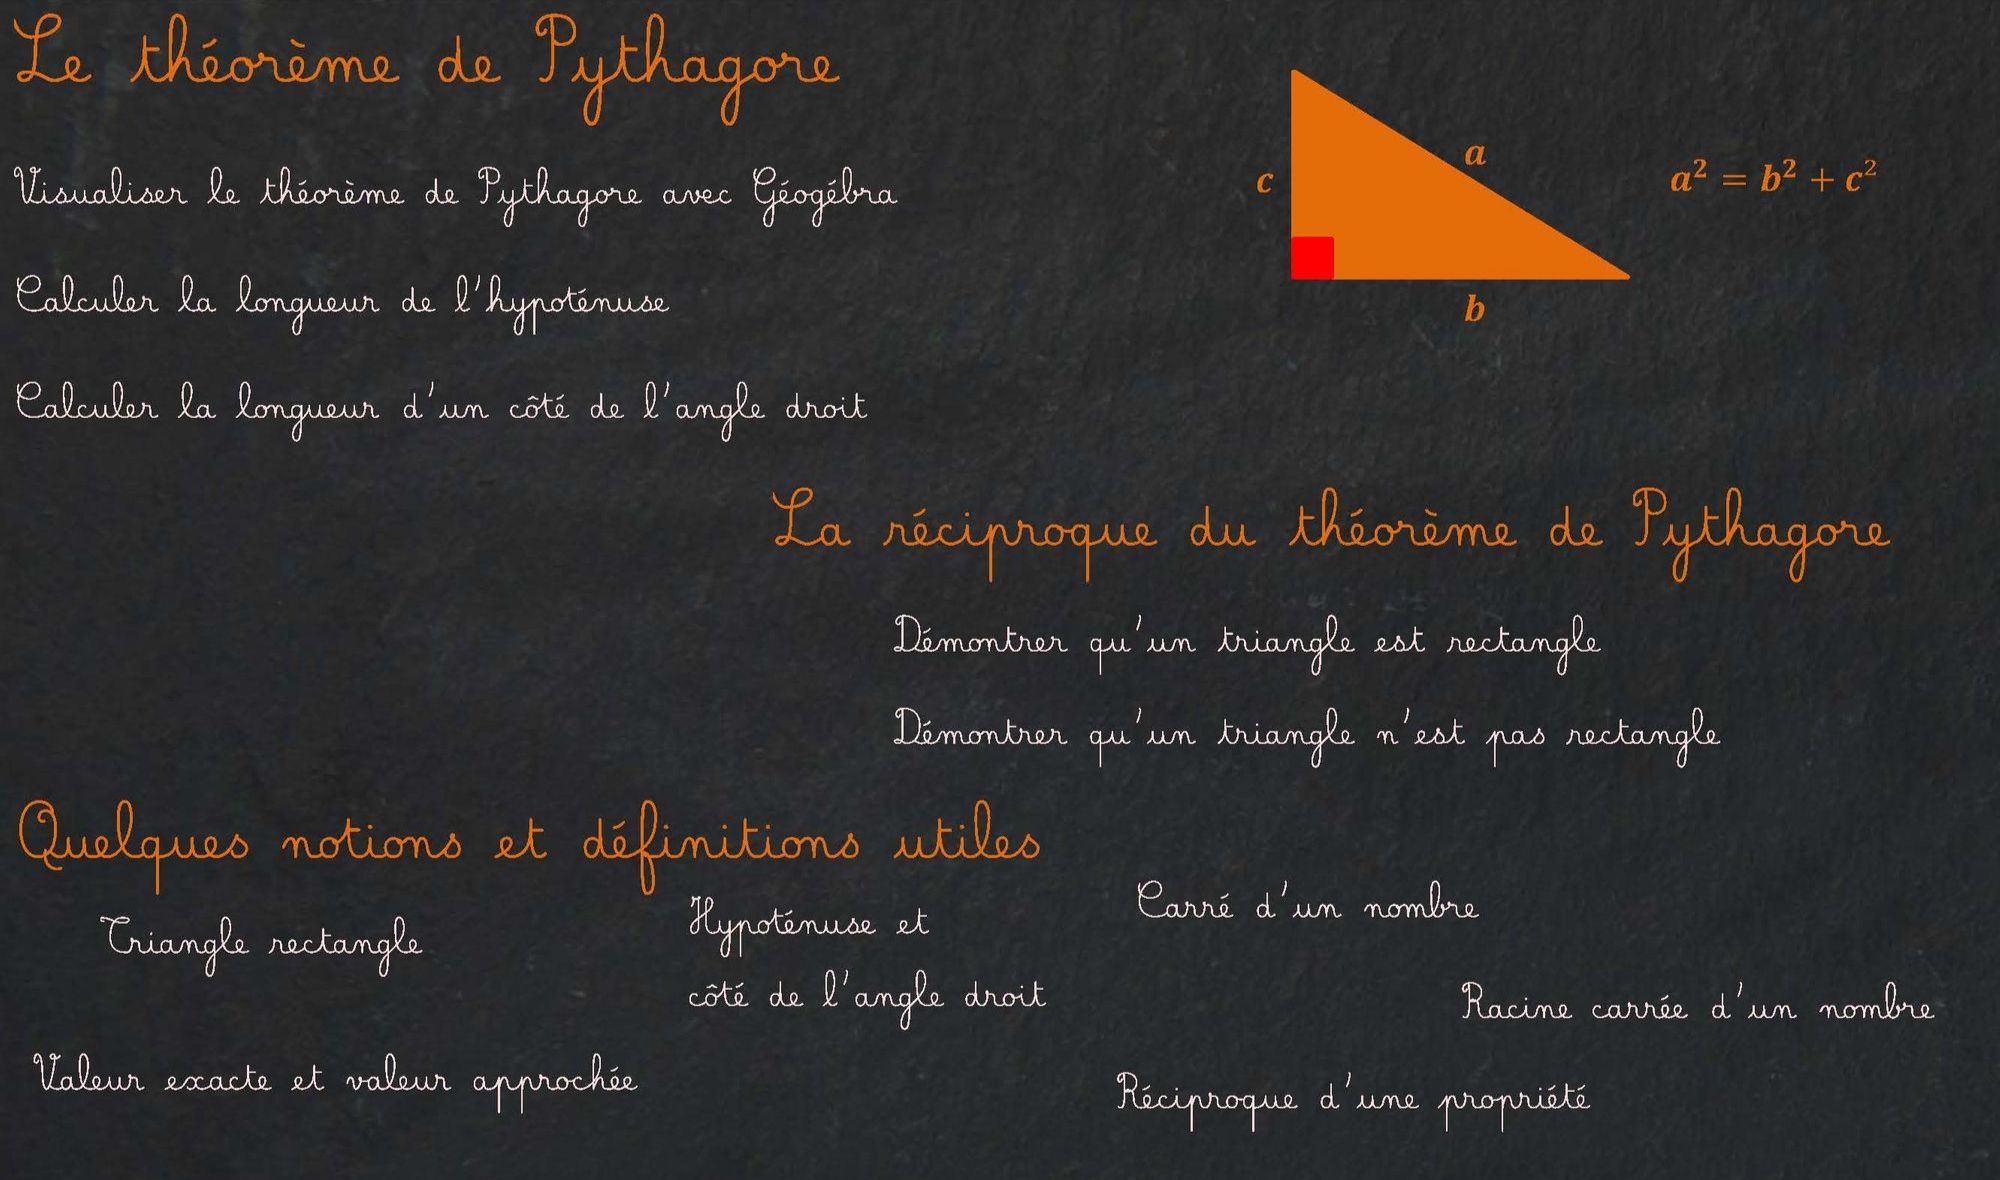 Le théorème de Pythagore
a
c
a² = b² + c²
b
Visualiser le théorème de Pythagore avec Géogébra
Calculer la longueur de l'hypoténuse
Calculer la longueur d'un côté de l'angle droit
La réciproque du théorème de Pythagore
Démontrer qu'un triangle est rectangle
Démontrer qu'un triangle n'est pas rectangle
Quelques notions et définitions utiles
Triangle rectangle
Hypoténuse et
côté de l'angle droit
Carré d'un nombre
Racine carrée d'un nombre
Valeur exacte et valeur approchée
Réciproque d'une propriété